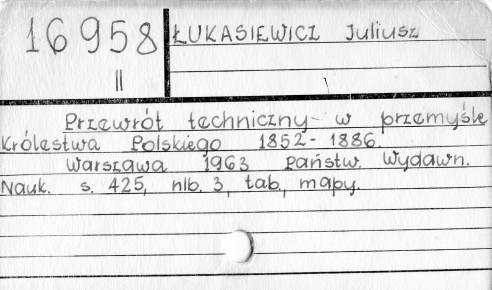 16958
II
ŁUKASIEWICZ Juliusz
Przewrót techniczny w przemyśle
Królestwa Polskiego 1852-1886.
Warszawa 1963 Państw. Wydawn.
Nauk. s. 425, nlb. 3, tab., mapy.